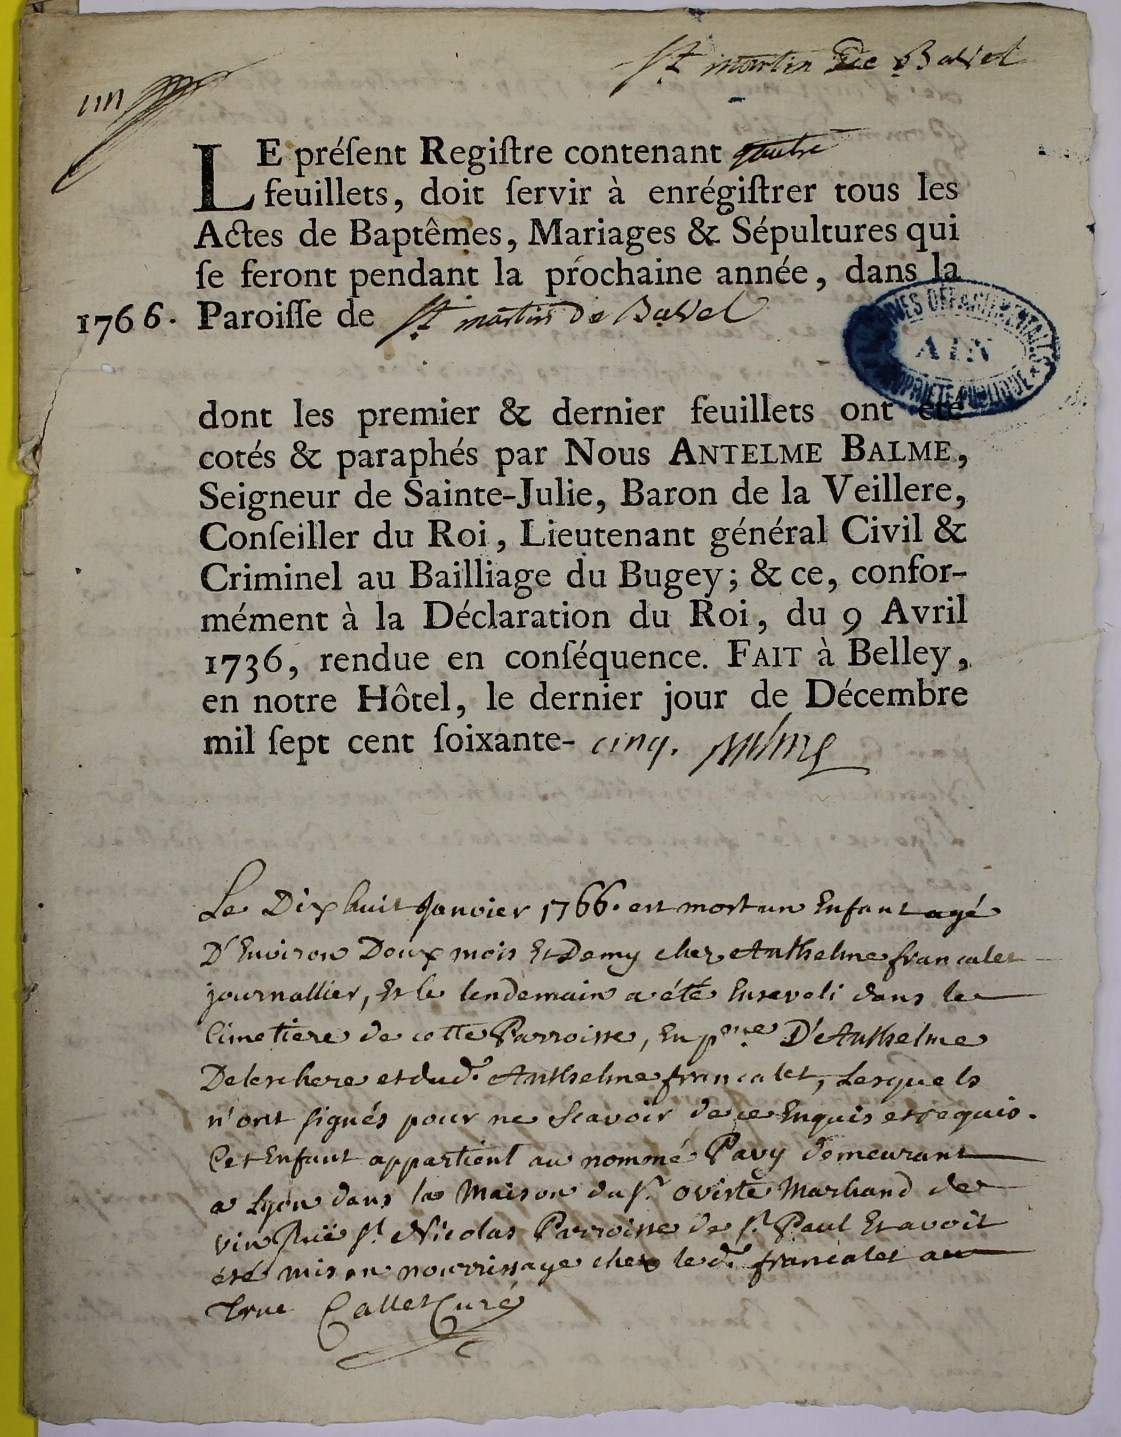 St martin De Bavel
LE préſent Regiſtre contenant quatre
feuillets, doit ſervir à enrégiſtrer tous les
Actes de Baptêmes, Mariages & Sépultures qui
ſe feront pendant la prochaine année, dans la
1766. Paroiſſe de St martin de Bavel
ARCHIVES DÉPARTEMENTALES
AIN
PROPRIÉTÉ PUBLIQUE
dont les premier & dernier feuillets ont été
cotés & paraphés par Nous ANTELME BALME,
Seigneur de Sainte-Julie, Baron de la Veillere,
Conſeiller du Roi, Lieutenant général Civil &
Criminel au Bailliage du Bugey; & ce, confor-
mément à la Déclaration du Roi, du 9 Avril
1736, rendue en conſéquence. FAIT à Belley,
en notre Hôtel, le dernier jour de Décembre
mil ſept cent ſoixante- cinq. Balme
Le Dix huit Janvier 1766. est mort un Enfant agé
D'Environ Deux mois Et Demy chez Anthelme francalet
journallier, Et le lendemain a été Enseveli dans le
Cimetiere de cette Parroisse, En pnce D'Anthelme
Deleschere et dud. Anthelme francalet, Lesquels
n'ont signés pour ne Scavoir de ce Enquis et requis.
Cet Enfant appartient au nommé Pavy demeurant
a Lyon dans la Maison du Sr. oviste Marchand de
vin Ruë St. Nicolas Parroisse de St. Paul Et avoit
été mis en nourrissage chez le d. francalet au
Callet Curé